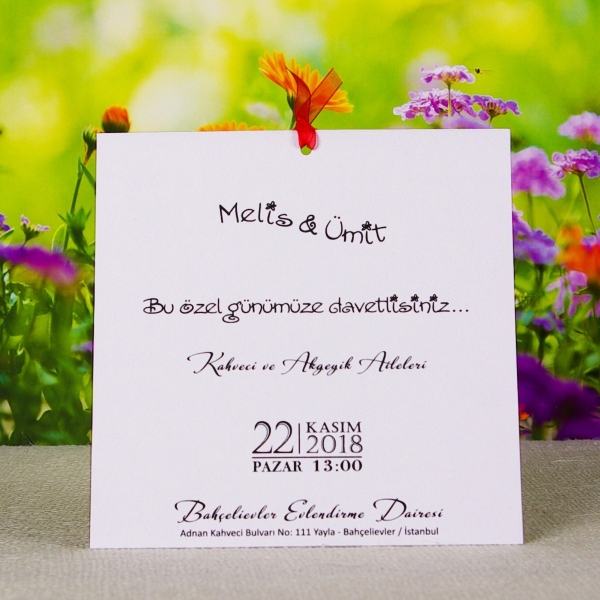 Melis & Ümit
Bu özel günümüze davetlisiniz...
Kahveci ve Akgeyik Aileleri
22 | KASIM 2018
PAZAR 13:00
Bahçelievler Evlendirme Dairesi
Adnan Kahveci Bulvarı No: 111 Yayla - Bahçelievler / İstanbul